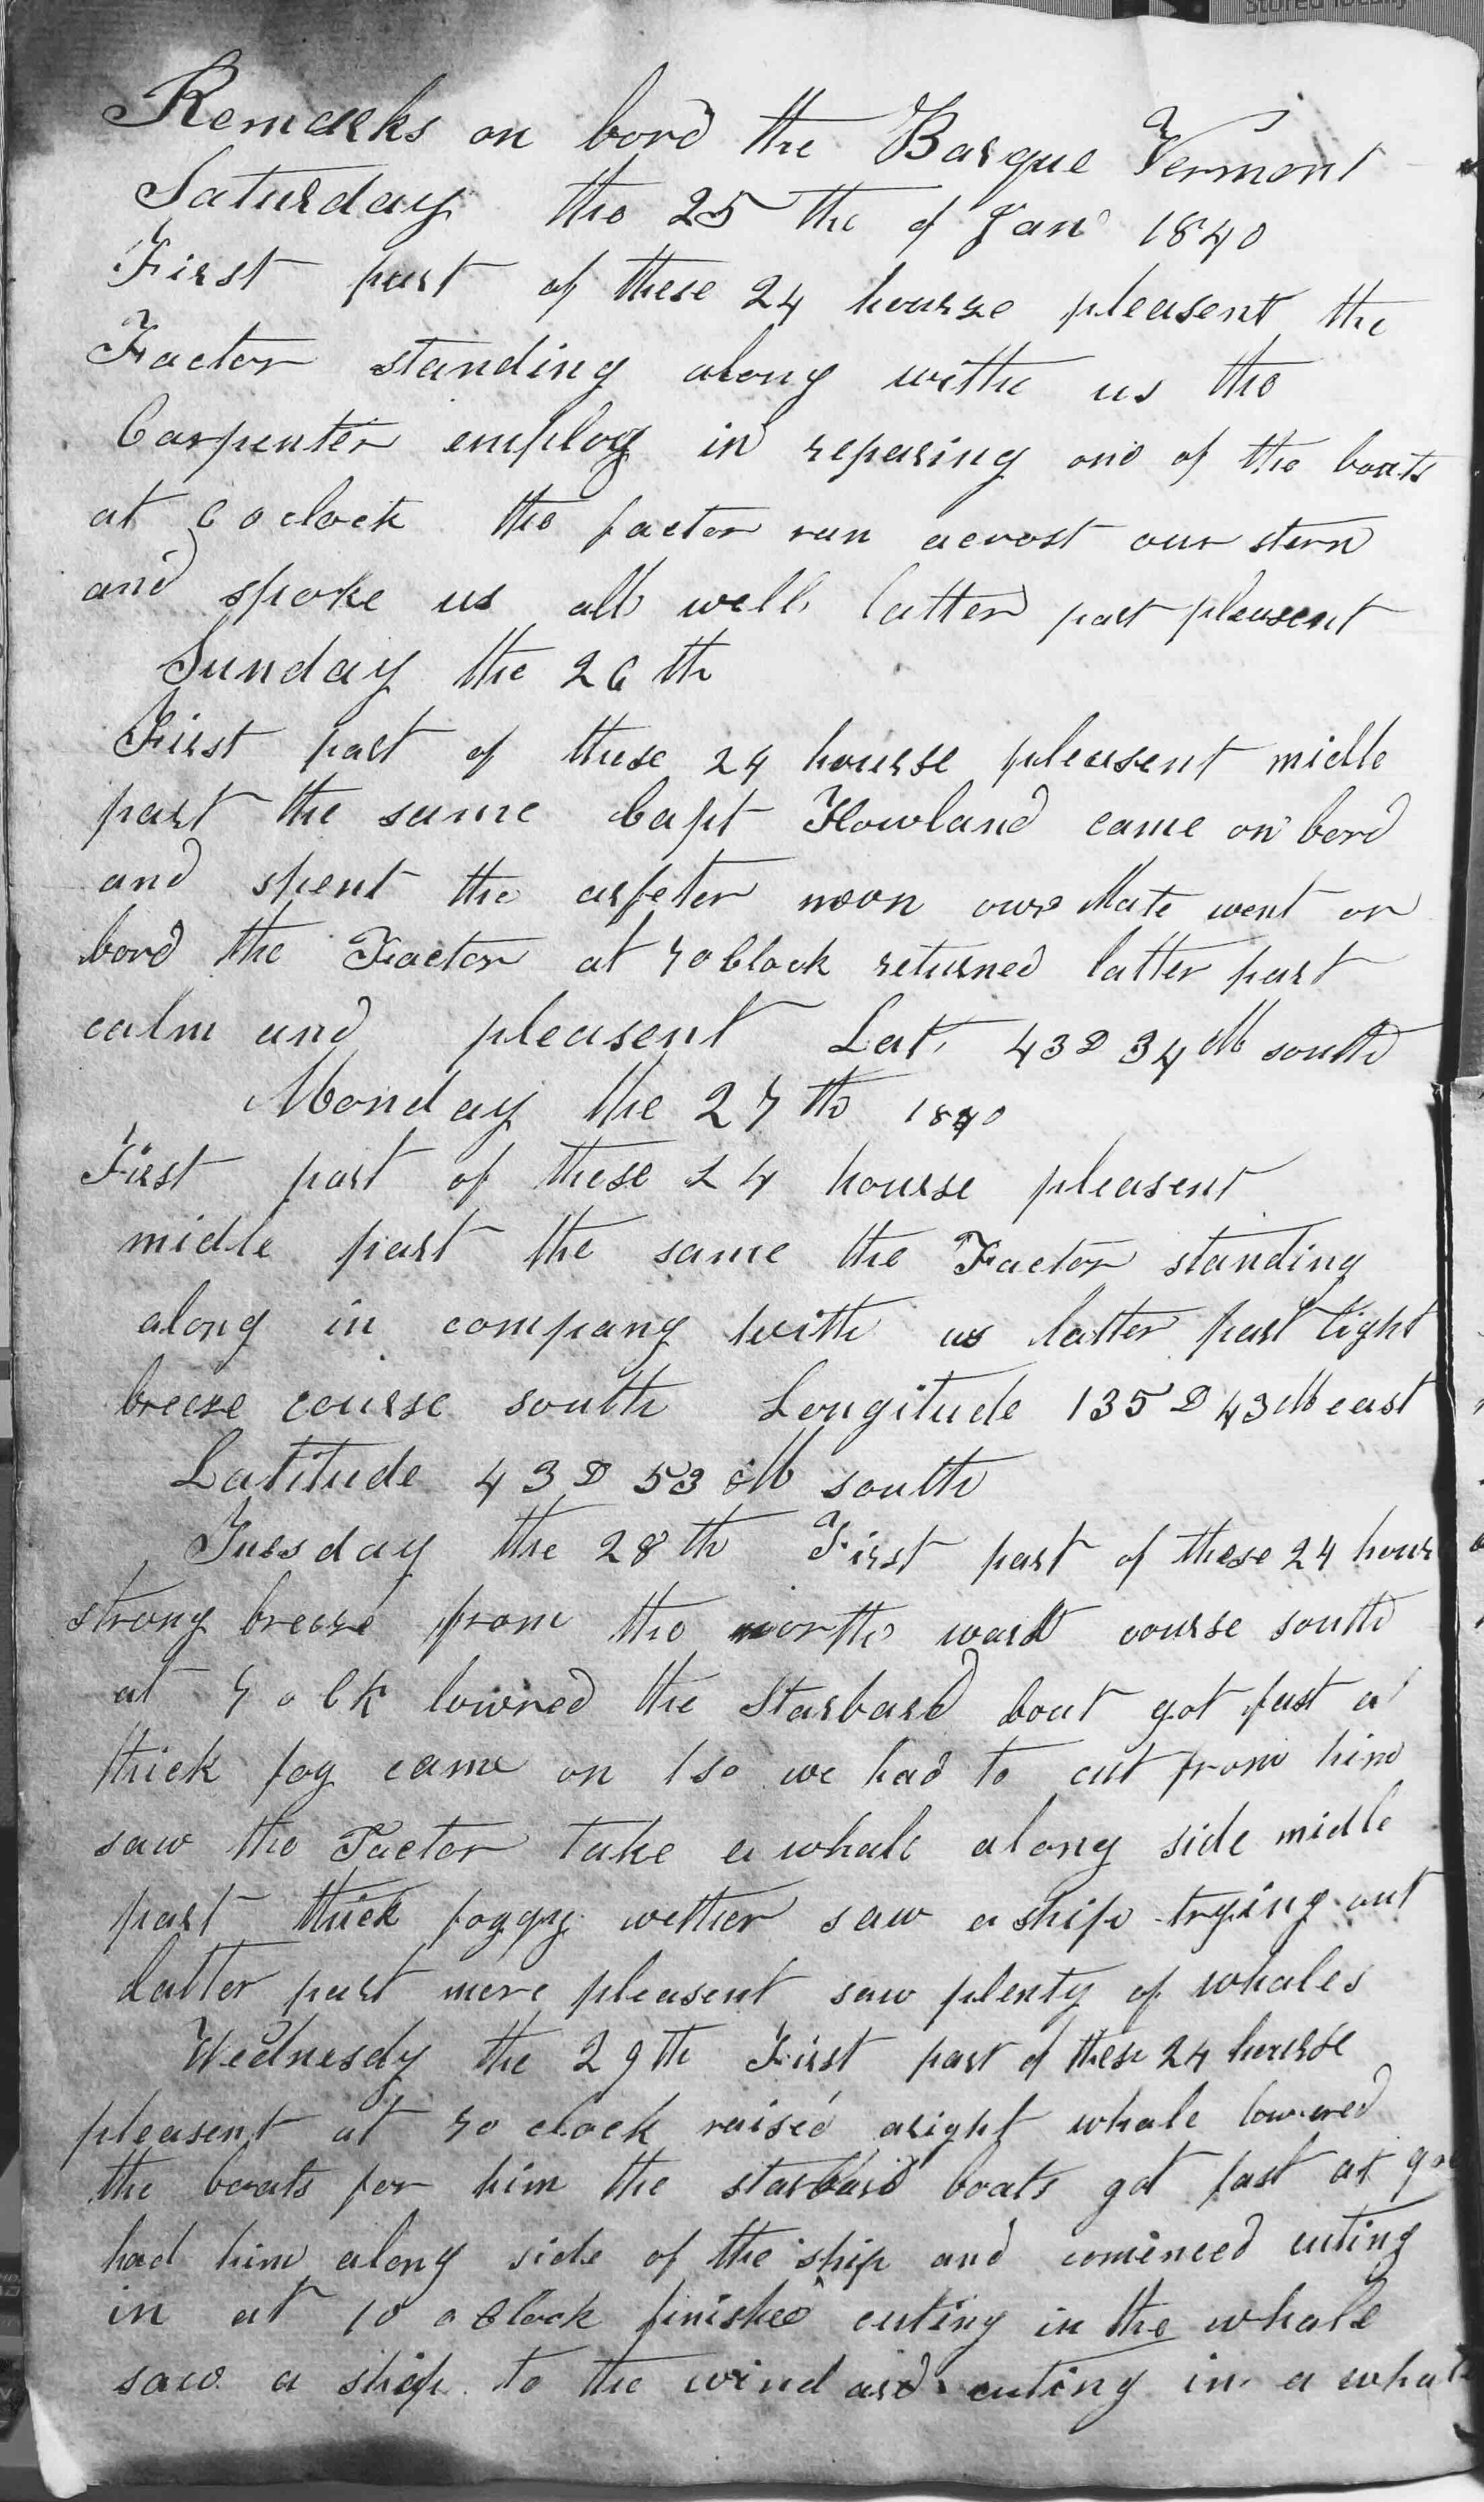 Stored locally
Remarks on bord the Barque Vermont
Saturday the 25 the of Jan 1840
First part of these 24 hourse pleasent the
Factor standing along withe us the
Carpenter employ in reparing one of the boats
at 6 oclock the factor run acrost our stern
and spoke us all well latter part pleasent
Sunday the 26 th
First part of these 24 hourse pleasent midle
part the same Capt Howland came on bord
and spent the arfeter noon our Mate went on
bord the Factor at 7 oclock returned latter part
calm and pleasent Lat, 43 D 34 M south
Monday the 27 th 1840
First part of these 24 hourse pleasent
midle part the same the Factor standing
along in company with us latter part light
breeze course south Longitude 135 D 43 M east
Latitude 43 D 53 M south
Tuesday the 28 th First part of these 24 hour
strong breeze from the north ward course south
at 7 o clk lowred the Starbard boat got fast a
thick fog came on so we had to cut from him
saw the Factor take a whale along side midle
part thick foggy wether saw a ship trying out
Latter part more pleasent saw plenty of whales
Wednesdy the 29 th First part of these 24 hourse
pleasent at 7 o clock raised aright whale lowered
the boats for him the starbard boats got fast at 9
had him along side of the ship and comenced cuting
in at 10 o clock finished cuting in the whale
saw a ship to the wind ard cuting in a whale